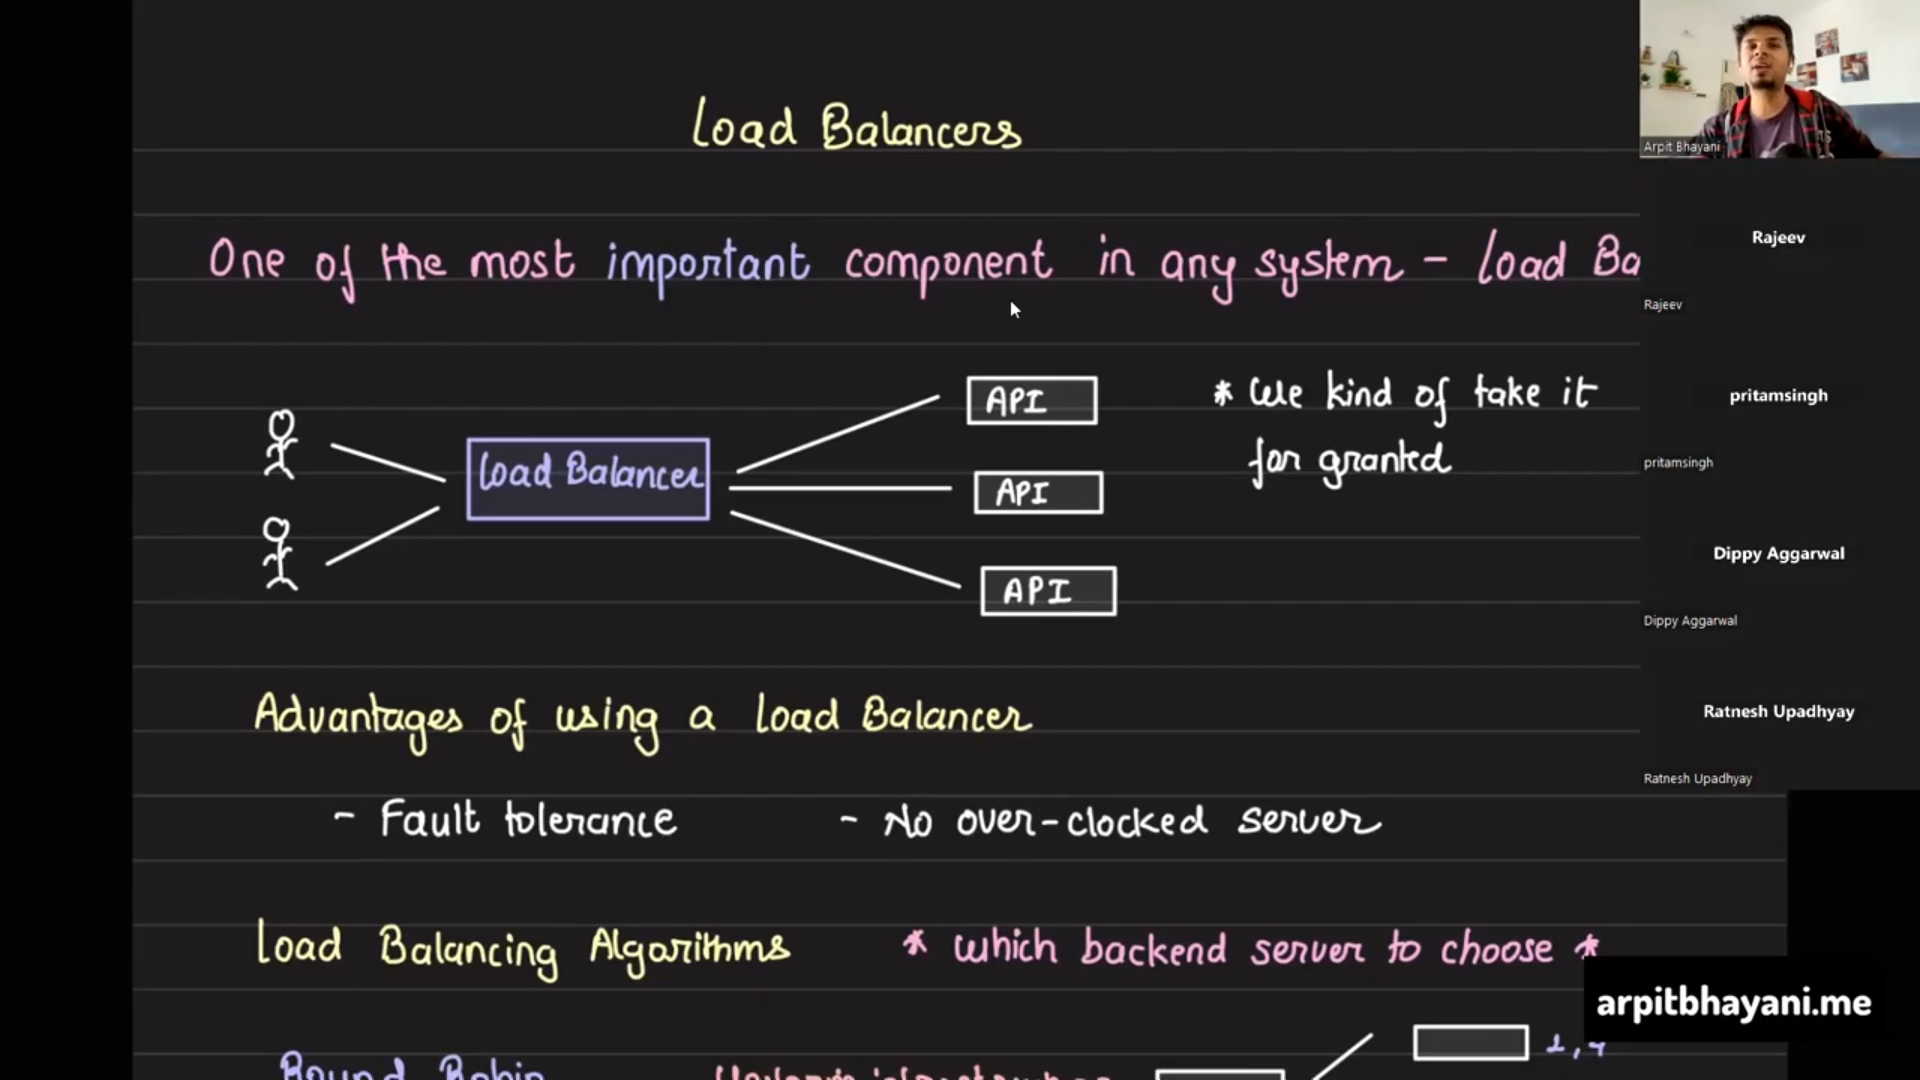 Load Balancers
One of the most important component in any system - Load Ba
API
* We kind of take it
for granted
Load Balancer
API
API
Advantages of using a Load Balancer
- Fault tolerance - No over-clocked server
Load Balancing Algorithms * which backend server to choose *
Round Robin
Arpit Bhayani
Rajeev
Rajeev
pritamsingh
pritamsingh
Dippy Aggarwal
Dippy Aggarwal
Ratnesh Upadhyay
Ratnesh Upadhyay
arpitbhayani.me